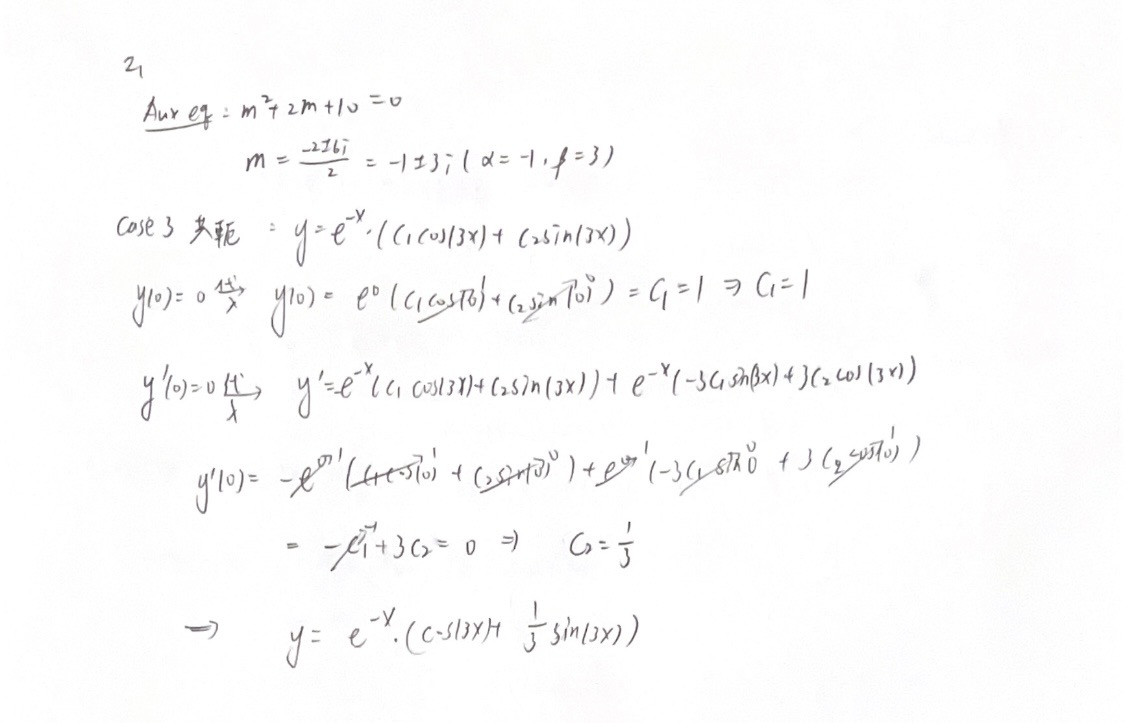 2,
Aux eq : m²+2m+10=0
m = (-2±6i)/2 = -1±3i (α=-1, β=3)
Case 3 共軛 : y=e^-x·(C₁cos(3x)+C₂sin(3x))
y(0)=0 代入→ y(0)= e⁰(C₁cos(0)¹+C₂sin(0)⁰) = C₁=1 ⇒ C₁=1
y'(0)=0 代入→ y'=-e^-x(C₁cos(3x)+C₂sin(3x))+e^-x(-3C₁sin(3x)+3C₂cos(3x))
y'(0)= -e⁰¹(C₁cos(0)¹+C₂sin(0)⁰)+e⁰¹(-3C₁sin(0)⁰+3C₂cos(0)¹)
= -C₁¹+3C₂=0 ⇒ C₂=1/3
→ y= e^-x·(cos(3x)+1/3 sin(3x))